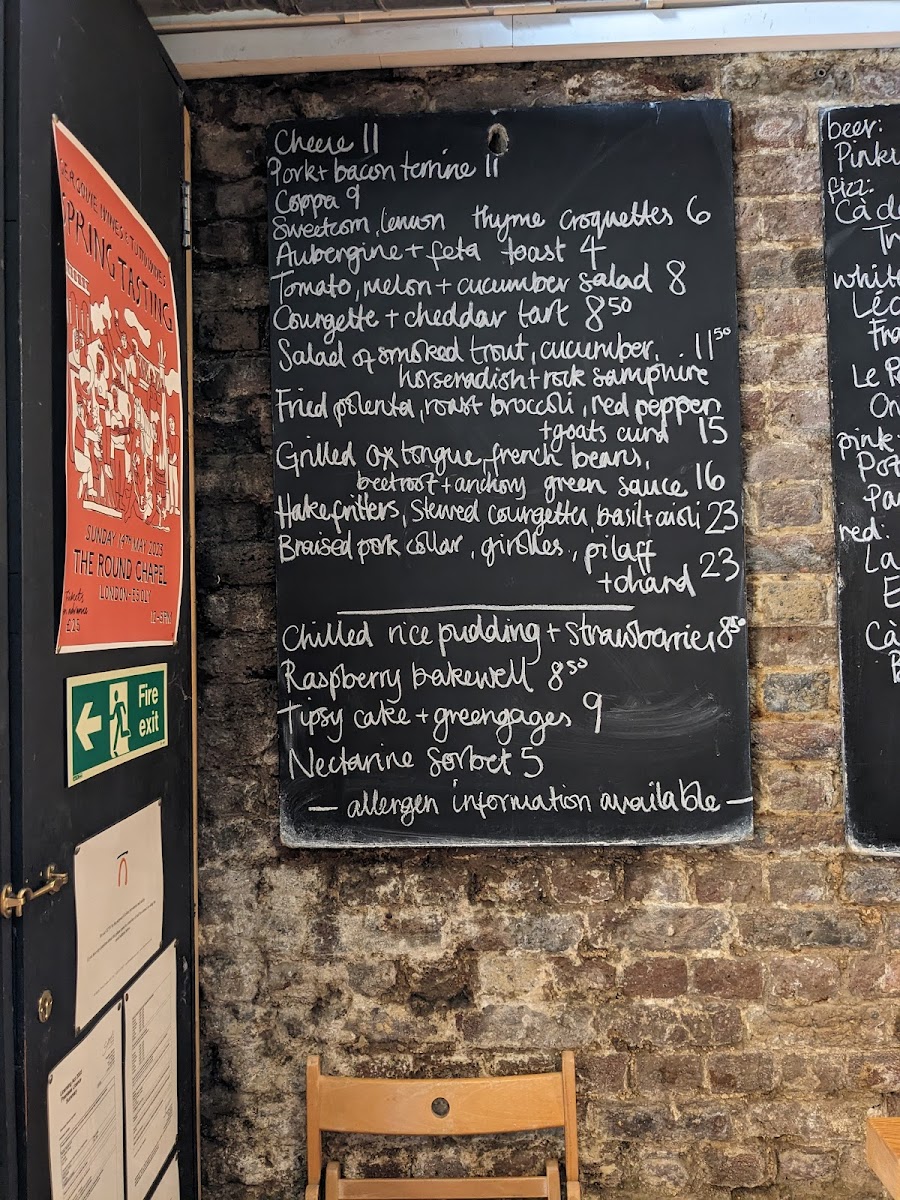 Cheese 11
Pork + bacon terrine 11
Coppa 9
Sweetcorn, lemon thyme croquettes 6
Aubergine + feta toast 4
Tomato, melon + cucumber salad 8
Courgette + cheddar tart 8 50
Salad of smoked trout, cucumber, 11 50
horseradish + rock samphire
Fried polenta, roast broccoli, red pepper
+ goats curd 15
Grilled ox tongue, french beans,
beetroot + anchovy green sauce 16
Hake fritters, stewed courgettes, basil + aioli 23
Braised pork collar, girolles, pilaff
+ chard 23
Chilled rice pudding + strawberries 8 50
Raspberry bakewell 8 50
Tipsy cake + greengages 9
Nectarine Sorbet 5
— allergen information available —
beer:
Pink
fizz:
Cà de
Tr
white
Léo
Fra
Le Pe
On
pink
Pot
Pa
red:
La
E
Cà
SPRING TASTING
SUNDAY 14TH MAY 2023
THE ROUND CHAPEL
LONDON - E5 0LY
tickets
in advance
£25
Fire
exit